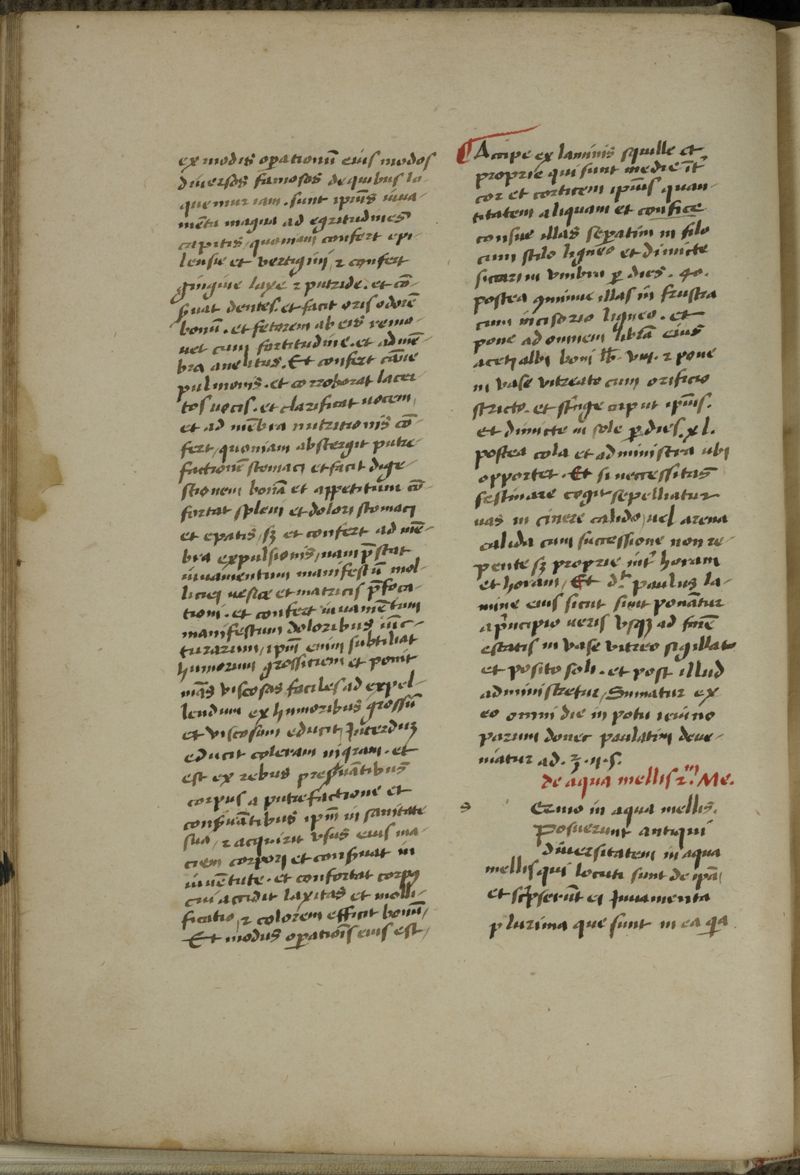 ex modis op̄ationū eius modos
diuersos famosos de quibus lo-
quemur iam. sunt ipīus iuua-
mēta magna ad egritudines
capitis, quoniam confert epi-
lensie et vertigini, ⁊ confert
gingiue laxe ⁊ putride. et cō-
s̄uat dentes. et facit oris odorē
bonū. et fetorem ab eis remo-
uet cum fortitudine. et ad mē-
bra anelitus. Et confert cāne
pulmonis. et corroborat lacer-
tos uocis. et clarificat uocem,
et ad mēbra nutritionis cō-
fert, quoniam abstergit putre-
factionē stomaci et facit dige-
stionem bonā et appetitum cō-
fortat spleni et dolori stomaci
et epatis, sꝫ et confert ad mē-
bra expulsionis, nam p̄stat
iuuamentum manifestū mol-
liciei uesice et matricis p̄foca-
tioni. et confert iuuamentum
manifestum doloribus iūc-
turarum, ipm̄ enim subtiliat
humorum grossitiem et ponit
mās viscosos faciles ad expel-
lendum ex humoribus grossū
et viscosum educit, Interduꝫ
educit coleram nigram. et
est ex rebus pres̄uātibus
corpus a putrefactione et
cons̄uātibus ipm̄ in sanitate
sua, ⁊ acquirit vsus eius ma-
ciem corporj et cons̄uat in
iuuētute. et confortat corpꝯ
cui accidit laxitas et molli-
ficatio, ⁊ colorem efficit bonū,
Et modus op̄atiōis eius est,
¶ Accipe ex laminis squille et
proprie qui sunt medie īt̄
cor et corticem ipīus quan-
titatem aliquam et confice
consue illas sep̄atim in filo
cum stilo ligneo et dimicte
siccari in vmbra ꝑ dies. 40.
postea ꝯminue illas in frustra
cum incisorio ligneo. et
pone ad omnem librā eius
acetj albi boni lb̄. viij. ⁊ pone
in vase vitreato cum orificio
stricto. et st̄nge caput ipīus.
et dimicte in sole ꝑ dies. xl.
postea cola et administra ubi
opportet. Et si necessitas
festinare cogit sepelliatur
uas in cinere calido, uel arena
calida cum successione non re-
pente sꝫ proprie int̄ horam
et horam, Et dt̄ paulus la-
mine eius sicut sunt ponātur
a p̄ncipio ueris vsqꝫ ad finē
estatis in vase vitreo sigillato
et posito soli. et post illud
administretur, Sumatur ex
eo omni die in potu ieiuno
parum donec paulatim deue-
niatur ad. ℥.ij.s.
de aqua mellis Me.
Ermo in aqua mellis.
Posuerunt antiqui
diuersitatem in aqua
mellis qui locuti sunt de ip̄a
et sc̄pserūt ei Iuuamenta
plurima que sunt in ea q̄a